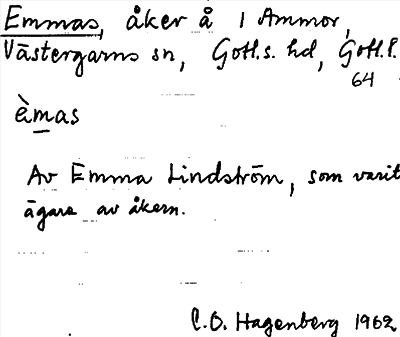 Emmas, åker å 1 Ammor,
Västergarns sn, Gotl.s. hd, Gotl.l.
64
èmas
Av Emma Lindström, som varit
ägare av åkern.
C.O. Hagenberg 1962